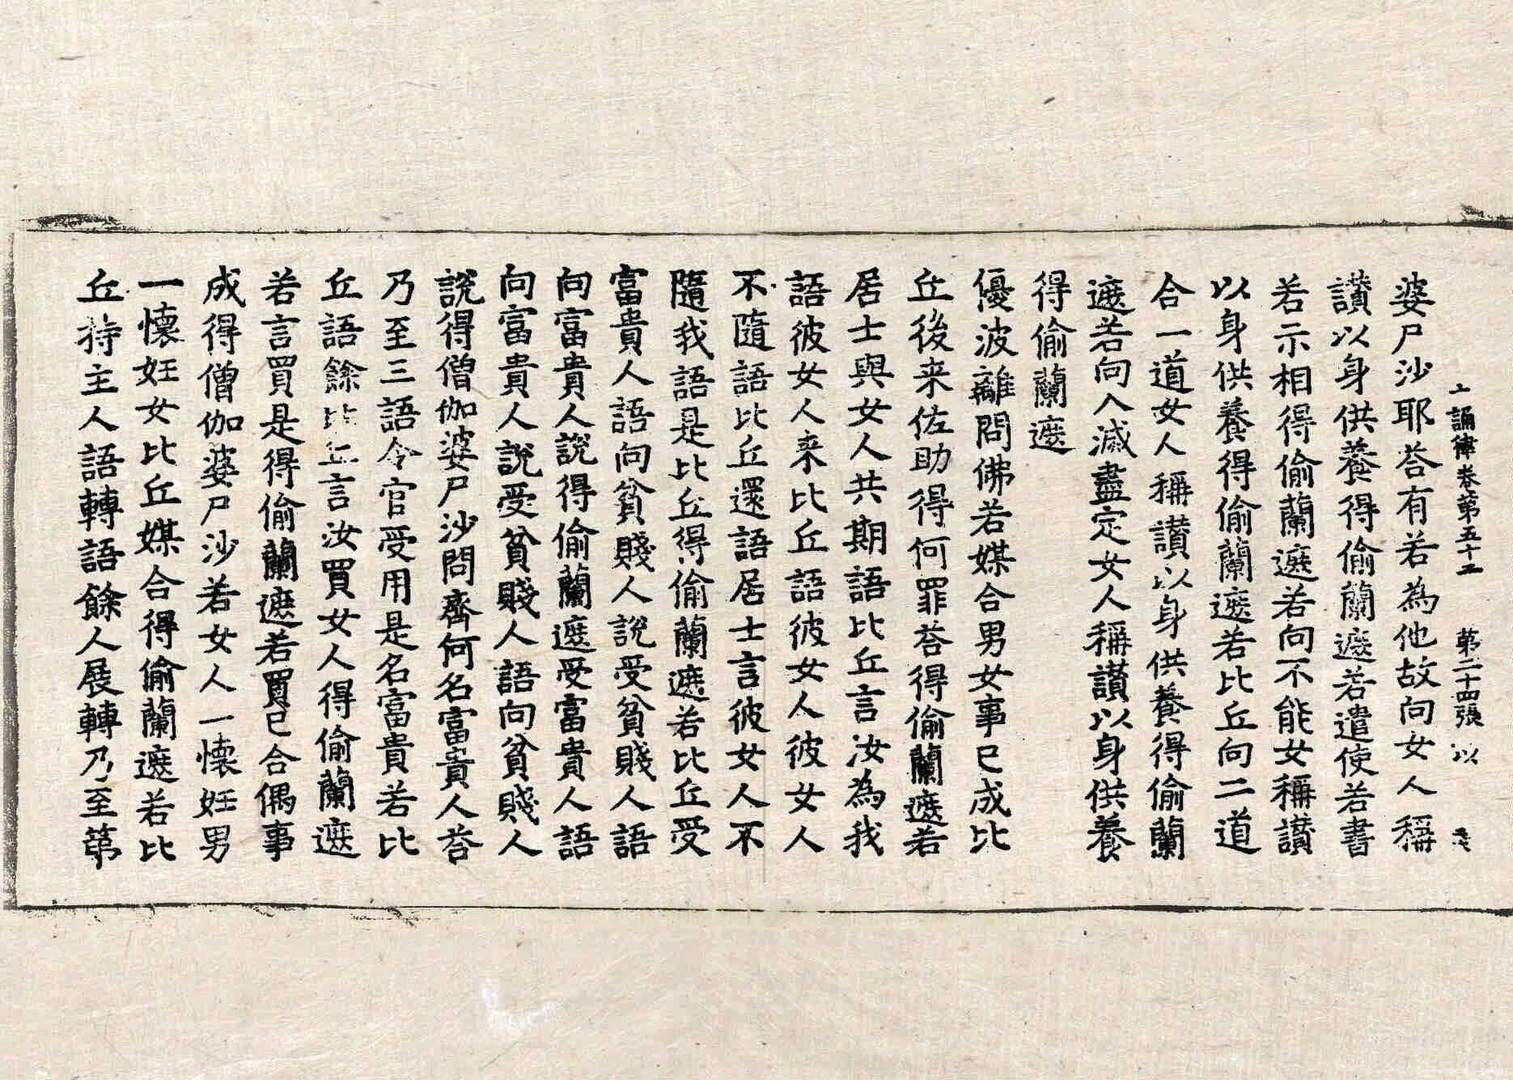 婆尸沙耶荅有若為他故向女人稱
十誦律卷第五十二　第二十四張　以
讃以身供養得偷蘭遮若遣使若書
若示相得偷蘭遮若向不能女稱讃
以身供養得偷蘭遮若比丘向二道
合一道女人稱讃以身供養得偷蘭
遮若向入滅盡定女人稱讃以身供養
得偷蘭遮
優波離問佛若媒合男女事已成比
丘後来佐助得何罪荅得偷蘭遮若
居士與女人共期語比丘言汝為我
語彼女人来比丘語彼女人彼女人
不隨語比丘還語居士言彼女人不
隨我語是比丘得偷蘭遮若比丘受
富貴人語向貧賤人說受貧賤人語
向富貴人說得偷蘭遮受富貴人語
向富貴人說受貧賤人語向貧賤人
說得僧伽婆尸沙問齊何名富貴人荅
乃至三語令官受用是名富貴若比
丘語餘比丘言汝買女人得偷蘭遮
若言買是得偷蘭遮若買已合偶事
成得僧伽婆尸沙若女人一懷妊男
一懷妊女比丘媒合得偷蘭遮若比
丘持主人語轉語餘人展轉乃至第